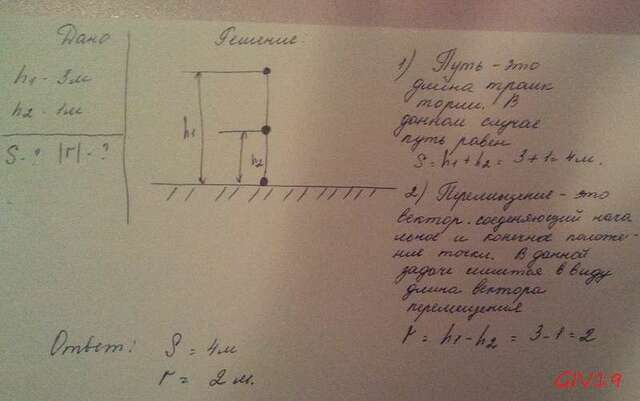 Дано
h1 - 3м
h2 - 1м
S - ? |r| - ?
Решение.
h1
h2
1) Путь - это
длина траик
тории. В
данном случае
путь равен
S = h1 + h2 = 3 + 1 = 4 м.
2) Перемищение - это
вектор соеденяющий нача
льное и конечное положе-
ние точки. В данной
задаче имиется в виду
длина вектора
перемищения
r = h1 - h2 = 3 - 1 = 2
Ответ: S = 4 м
r = 2 м.
GIV19